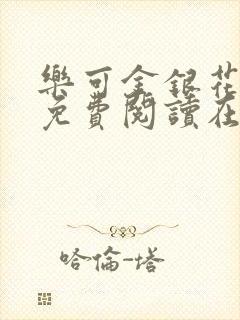 樂可金銀花
免費閱讀在
哈倫-塔